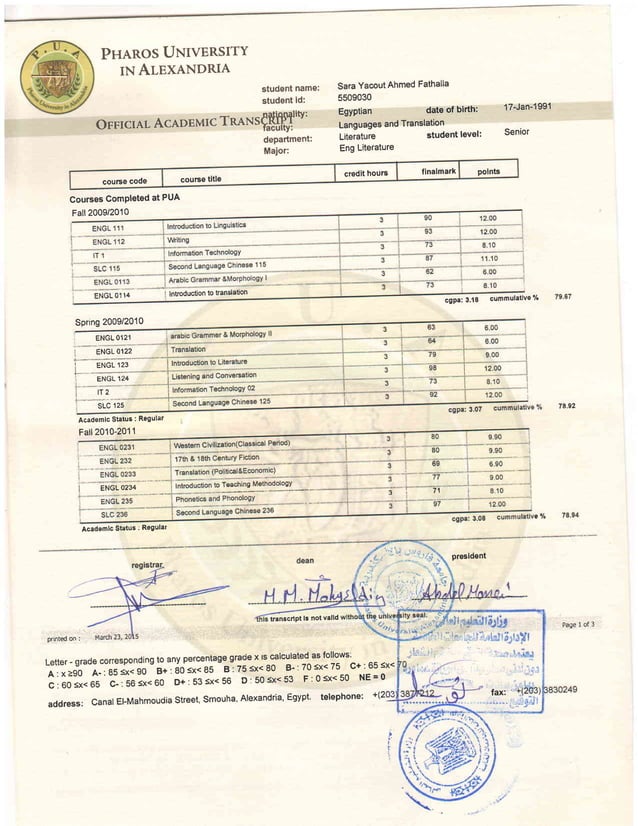 P.U.A
Pharos University in Alexandria
PHAROS UNIVERSITY
IN ALEXANDRIA
OFFICIAL ACADEMIC TRANSCRIPT
student name: Sara Yacout Ahmed Fathalla
student id: 5509030
nationality: Egyptian date of birth: 17-Jan-1991
faculty: Languages and Translation
department: Literature student level: Senior
Major: Eng Literature
course code course title credit hours finalmark points
Courses Completed at PUA
Fall 2009/2010
ENGL 111 Introduction to Linguistics 3 90 12.00
ENGL 112 Writing 3 93 12.00
IT 1 Information Technology 3 73 8.10
SLC 115 Second Language Chinese 115 3 87 11.10
ENGL 0113 Arabic Grammar &Morphology I 3 62 6.00
ENGL 0114 Introduction to translation 3 73 8.10
cgpa: 3.18 cummulative % 79.67
Spring 2009/2010
ENGL 0121 arabic Grammer & Morphology II 3 63 6.00
ENGL 0122 Translation 3 64 6.00
ENGL 123 Introduction to Literature 3 79 9.00
ENGL 124 Listening and Conversation 3 98 12.00
IT 2 Information Technology 02 3 73 8.10
SLC 125 Second Language Chinese 125 3 92 12.00
Academic Status : Regular cgpa: 3.07 cummulative % 78.92
Fall 2010-2011
ENGL 0231 Western Civilization(Classical Period) 3 80 9.90
ENGL 232 17th & 18th Century Fiction 3 80 9.90
ENGL 0233 Translation (Political&Economic) 3 69 6.90
ENGL 0234 Introduction to Teaching Methodology 3 77 9.00
ENGL 235 Phonetics and Phonology 3 71 8.10
SLC 236 Second Language Chinese 236 3 97 12.00
Academic Status : Regular cgpa: 3.08 cummulative % 78.94
registrar dean president
This transcript is not valid without the university seal.
printed on : March 23, 2015 Page 1 of 3
وزارة التعليم العالي
الإدارة العامة للجامعات
Letter - grade corresponding to any percentage grade x is calculated as follows:
A : x ≥90 A- : 85 ≤x< 90 B+ : 80 ≤x< 85 B : 75 ≤x< 80 B- : 70 ≤x< 75 C+ : 65 ≤x< 70
C : 60 ≤x< 65 C- : 56 ≤x< 60 D+ : 53 ≤x< 56 D : 50 ≤x< 53 F : 0 ≤x< 50 NE = 0
التوقيع
address: Canal El-Mahmoudia Street, Smouha, Alexandria, Egypt. telephone: +(203) 3877212 fax: +(203) 3830249